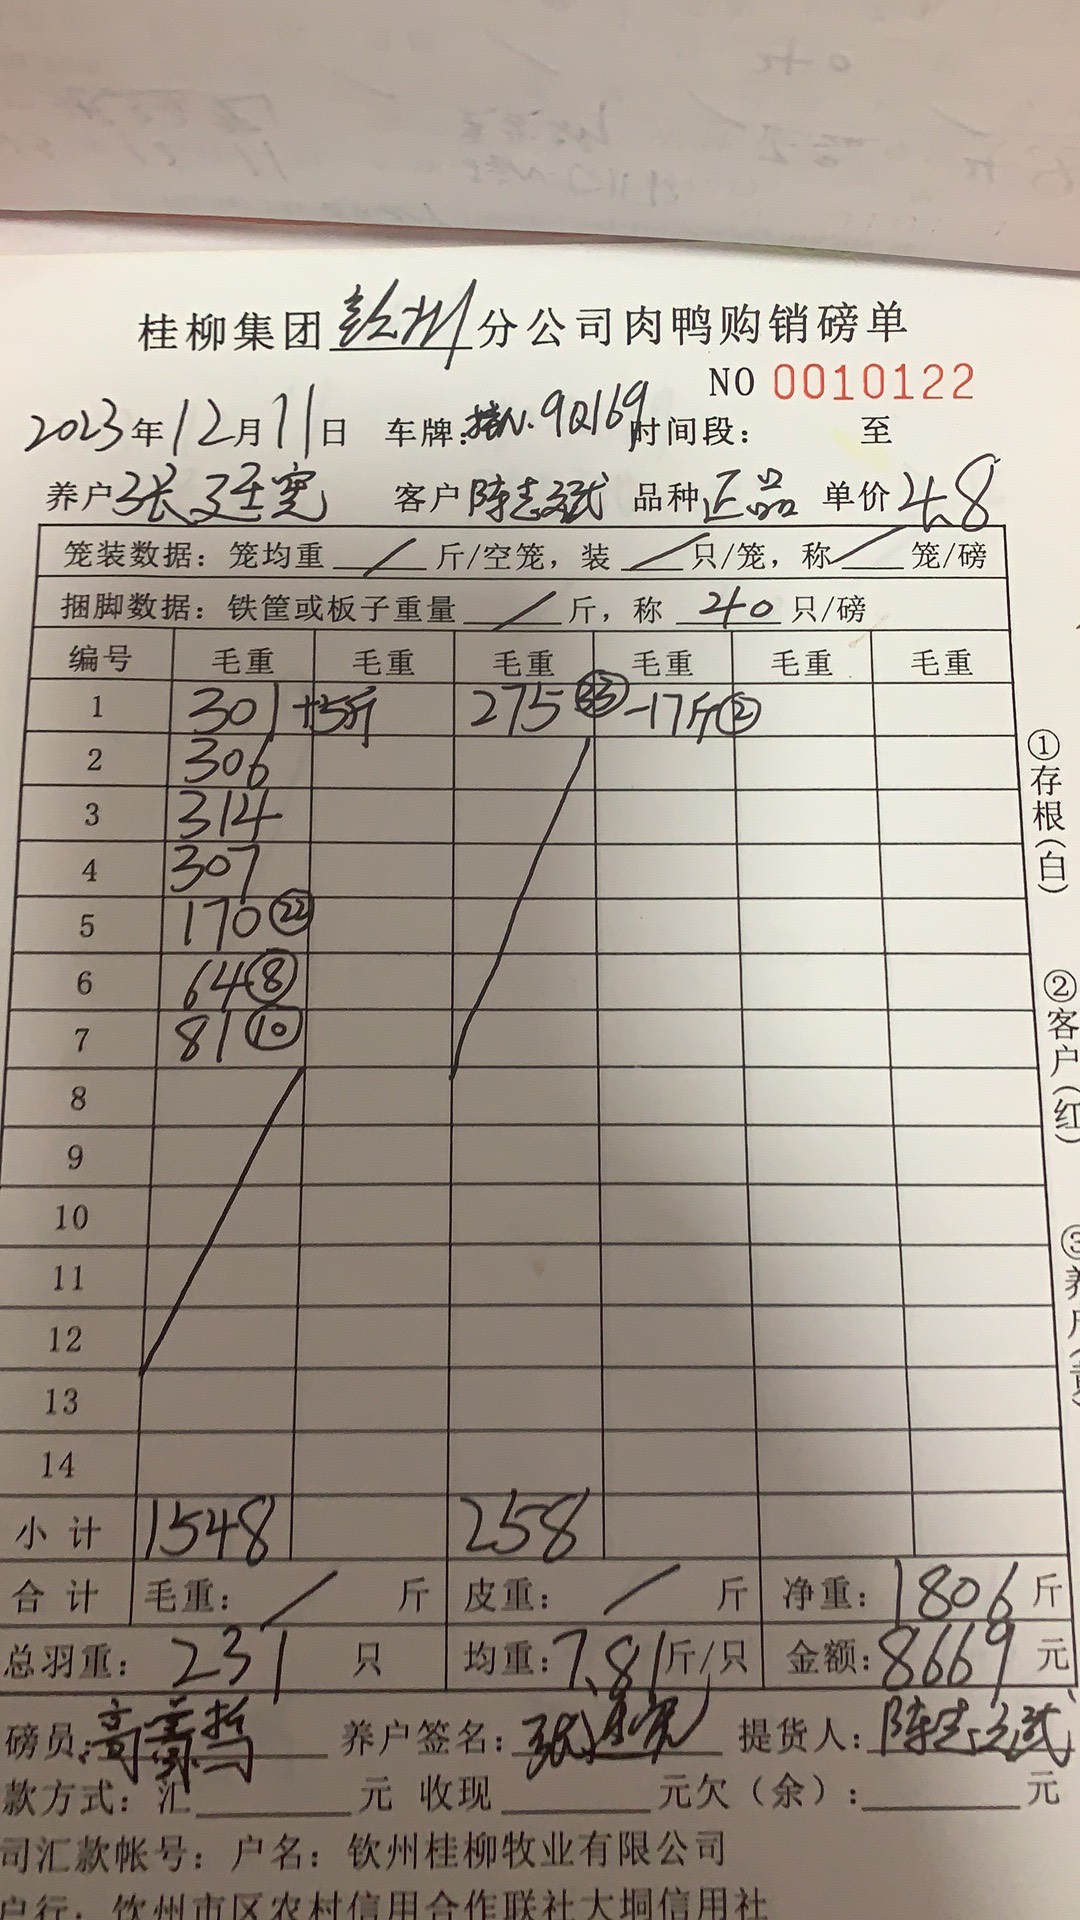 桂柳集团彭州分公司肉鸭购销磅单
NO 0010122
2023年12月11日 车牌: 9Q169 时间段: 至
养户 张廷宽 客户 陈志斌 品种 正品 单价 4.8
笼装数据: 笼均重 / 斤/空笼, 装 / 只/笼, 称 / 笼/磅
捆脚数据: 铁筐或板子重量 / 斤, 称 40 只/磅
编号 毛重 毛重 毛重 毛重 毛重 毛重
1 301 +5斤 275 -17斤②
2 306
3 314
4 307
5 170 ㉒
6 64 ⑧
7 81 ⑩
8
9
10
11
12
13
14
小计 1548 258
合计 毛重: / 斤 皮重: / 斤 净重: 1806 斤
总羽重: 231 只 均重: 7.81 斤/只 金额: 8669 元
磅员: 养户签名: 张廷宽 提货人: 陈志斌
款方式: 汇 元 收现 元欠(余): 元
司汇款帐号: 户名: 钦州桂柳牧业有限公司
户行: 钦州市区农村信用合作联社大垌信用社
①存根(白)
②客户(红)